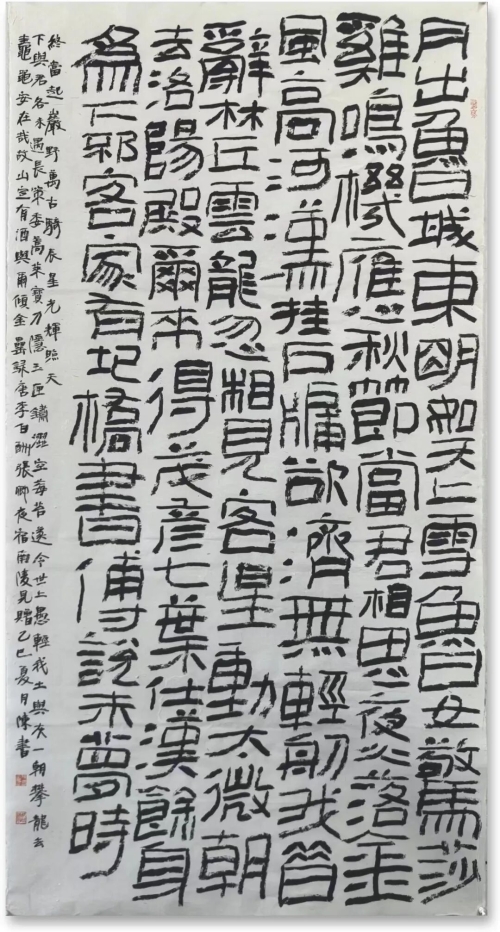 月出魯城東明如天上雪魯女驚莎
雞鳴機應秋節當君相思夜火落金
風高河漢挂戶牖欲濟無輕舠我昔
辭林丘雲龍忽相見客星動太微朝
去洛陽殿爾來得茂彦七葉仕漢餘身
為下邳客家有圯橋書傅說未夢時
終當起巖野萬古騎辰星光輝照天
下與君各未遇長策委蒿萊寶刀隱玉匣鏽澀空莓苔遂令世上愚輕我土與灰一朝攀龍去
鼃黽安在哉故山定有酒與爾傾金罍錄唐李白酬張卿夜宿南陵見贈乙巳夏月陳書